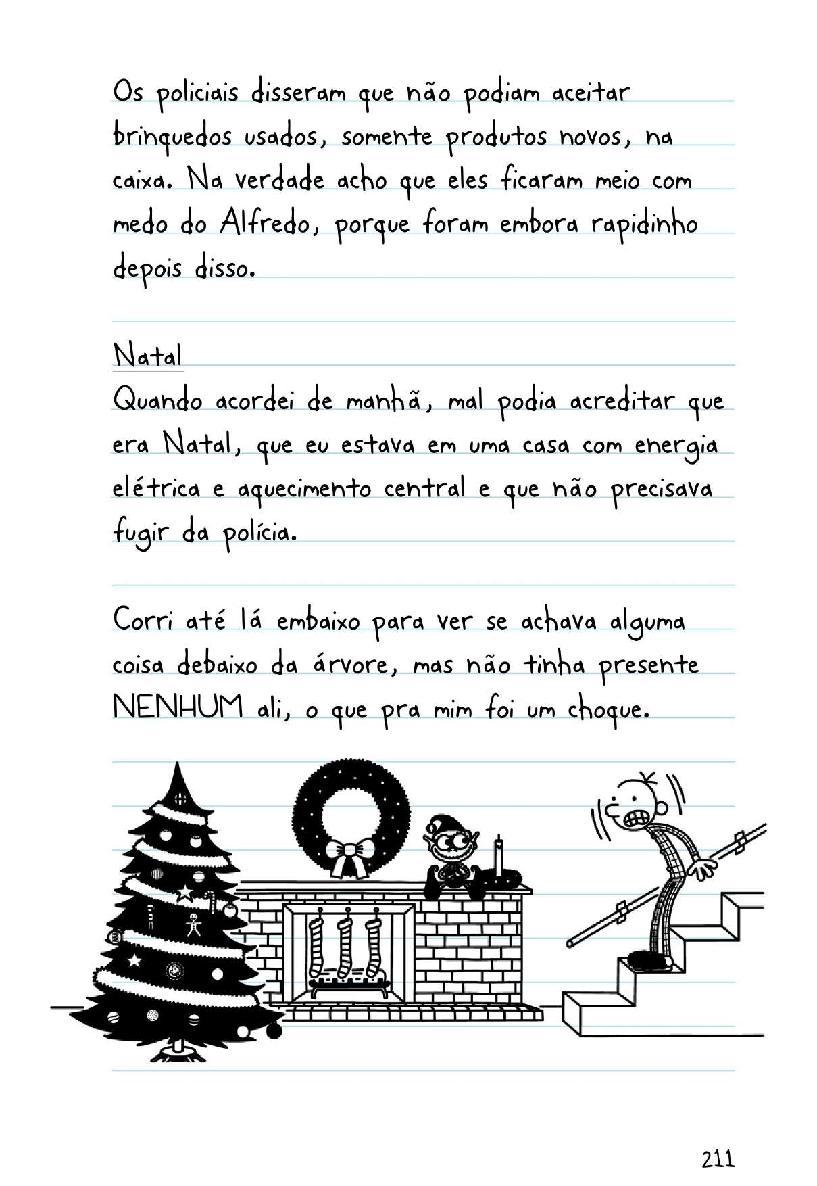 Os policiais disseram que não podiam aceitar
brinquedos usados, somente produtos novos, na
caixa. Na verdade acho que eles ficaram meio com
medo do Alfredo, porque foram embora rapidinho
depois disso.
Natal
Quando acordei de manhã, mal podia acreditar que
era Natal, que eu estava em uma casa com energia
elétrica e aquecimento central e que não precisava
fugir da polícia.
Corri até lá embaixo para ver se achava alguma
coisa debaixo da árvore, mas não tinha presente
NENHUM ali, o que pra mim foi um choque.
211